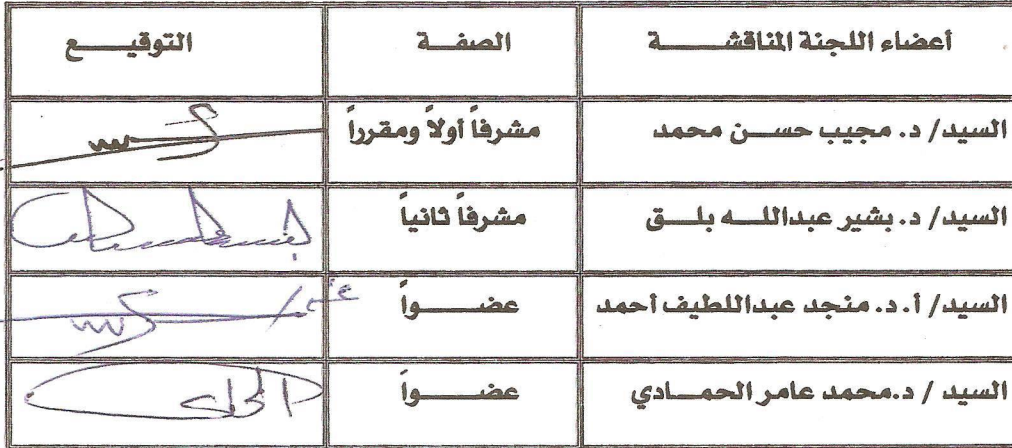 أعضاء اللجنة المناقشة الصفة التوقيع
السيد/ د. مجيب حسن محمد مشرفاً أولاً ومقرراً
السيد/ د. بشير عبدالله بلق مشرفاً ثانياً
السيد/ أ.د. منجد عبداللطيف أحمد عضواً
السيد / د.محمد عامر الحمادي عضواً